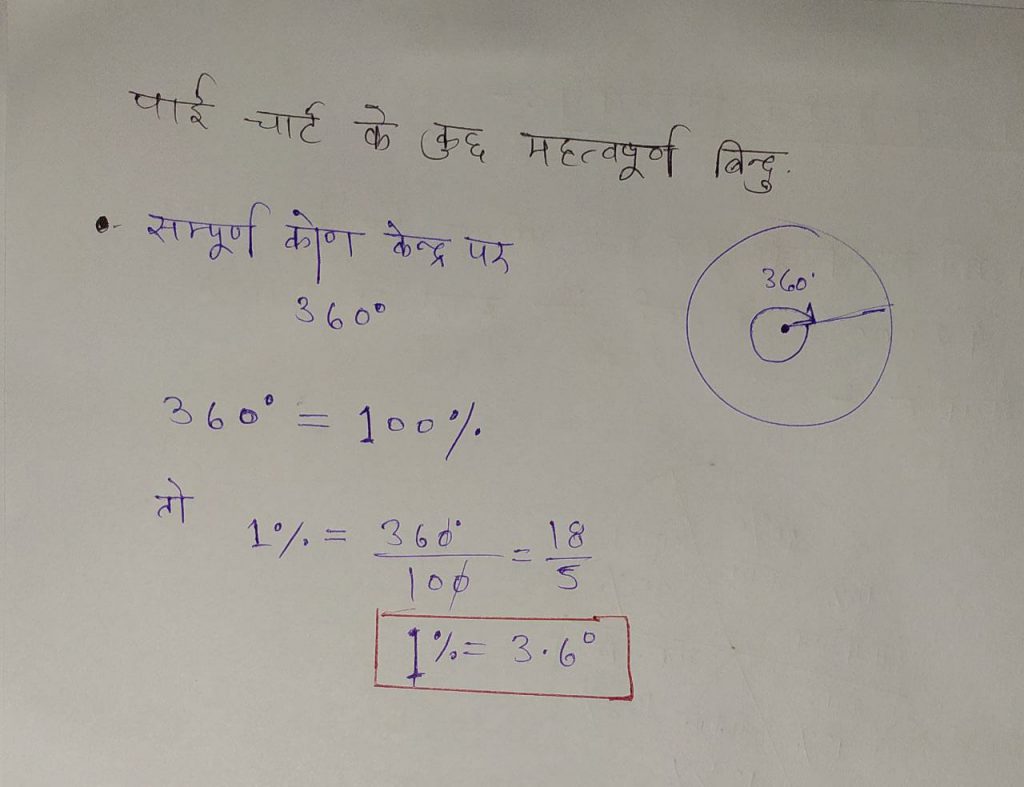 पाई चार्ट के कुछ महत्वपूर्ण बिन्दु.
•- सम्पूर्ण कोण केन्द्र पर
360°
360°
360° = 100%
तो
1% = 360°/100 = 18/5
1% = 3.6°